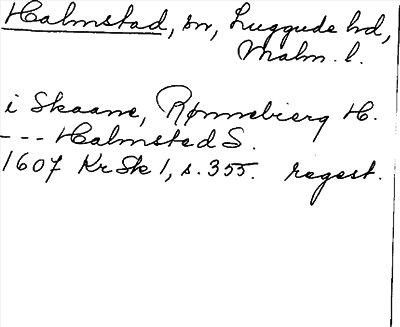 Halmstad, sn, Luggude hd,
Malm. l.
i Skaane, Rønnebierg H.
--- Halmsted S.
1607 Kr Sk 1, s. 355. regest.